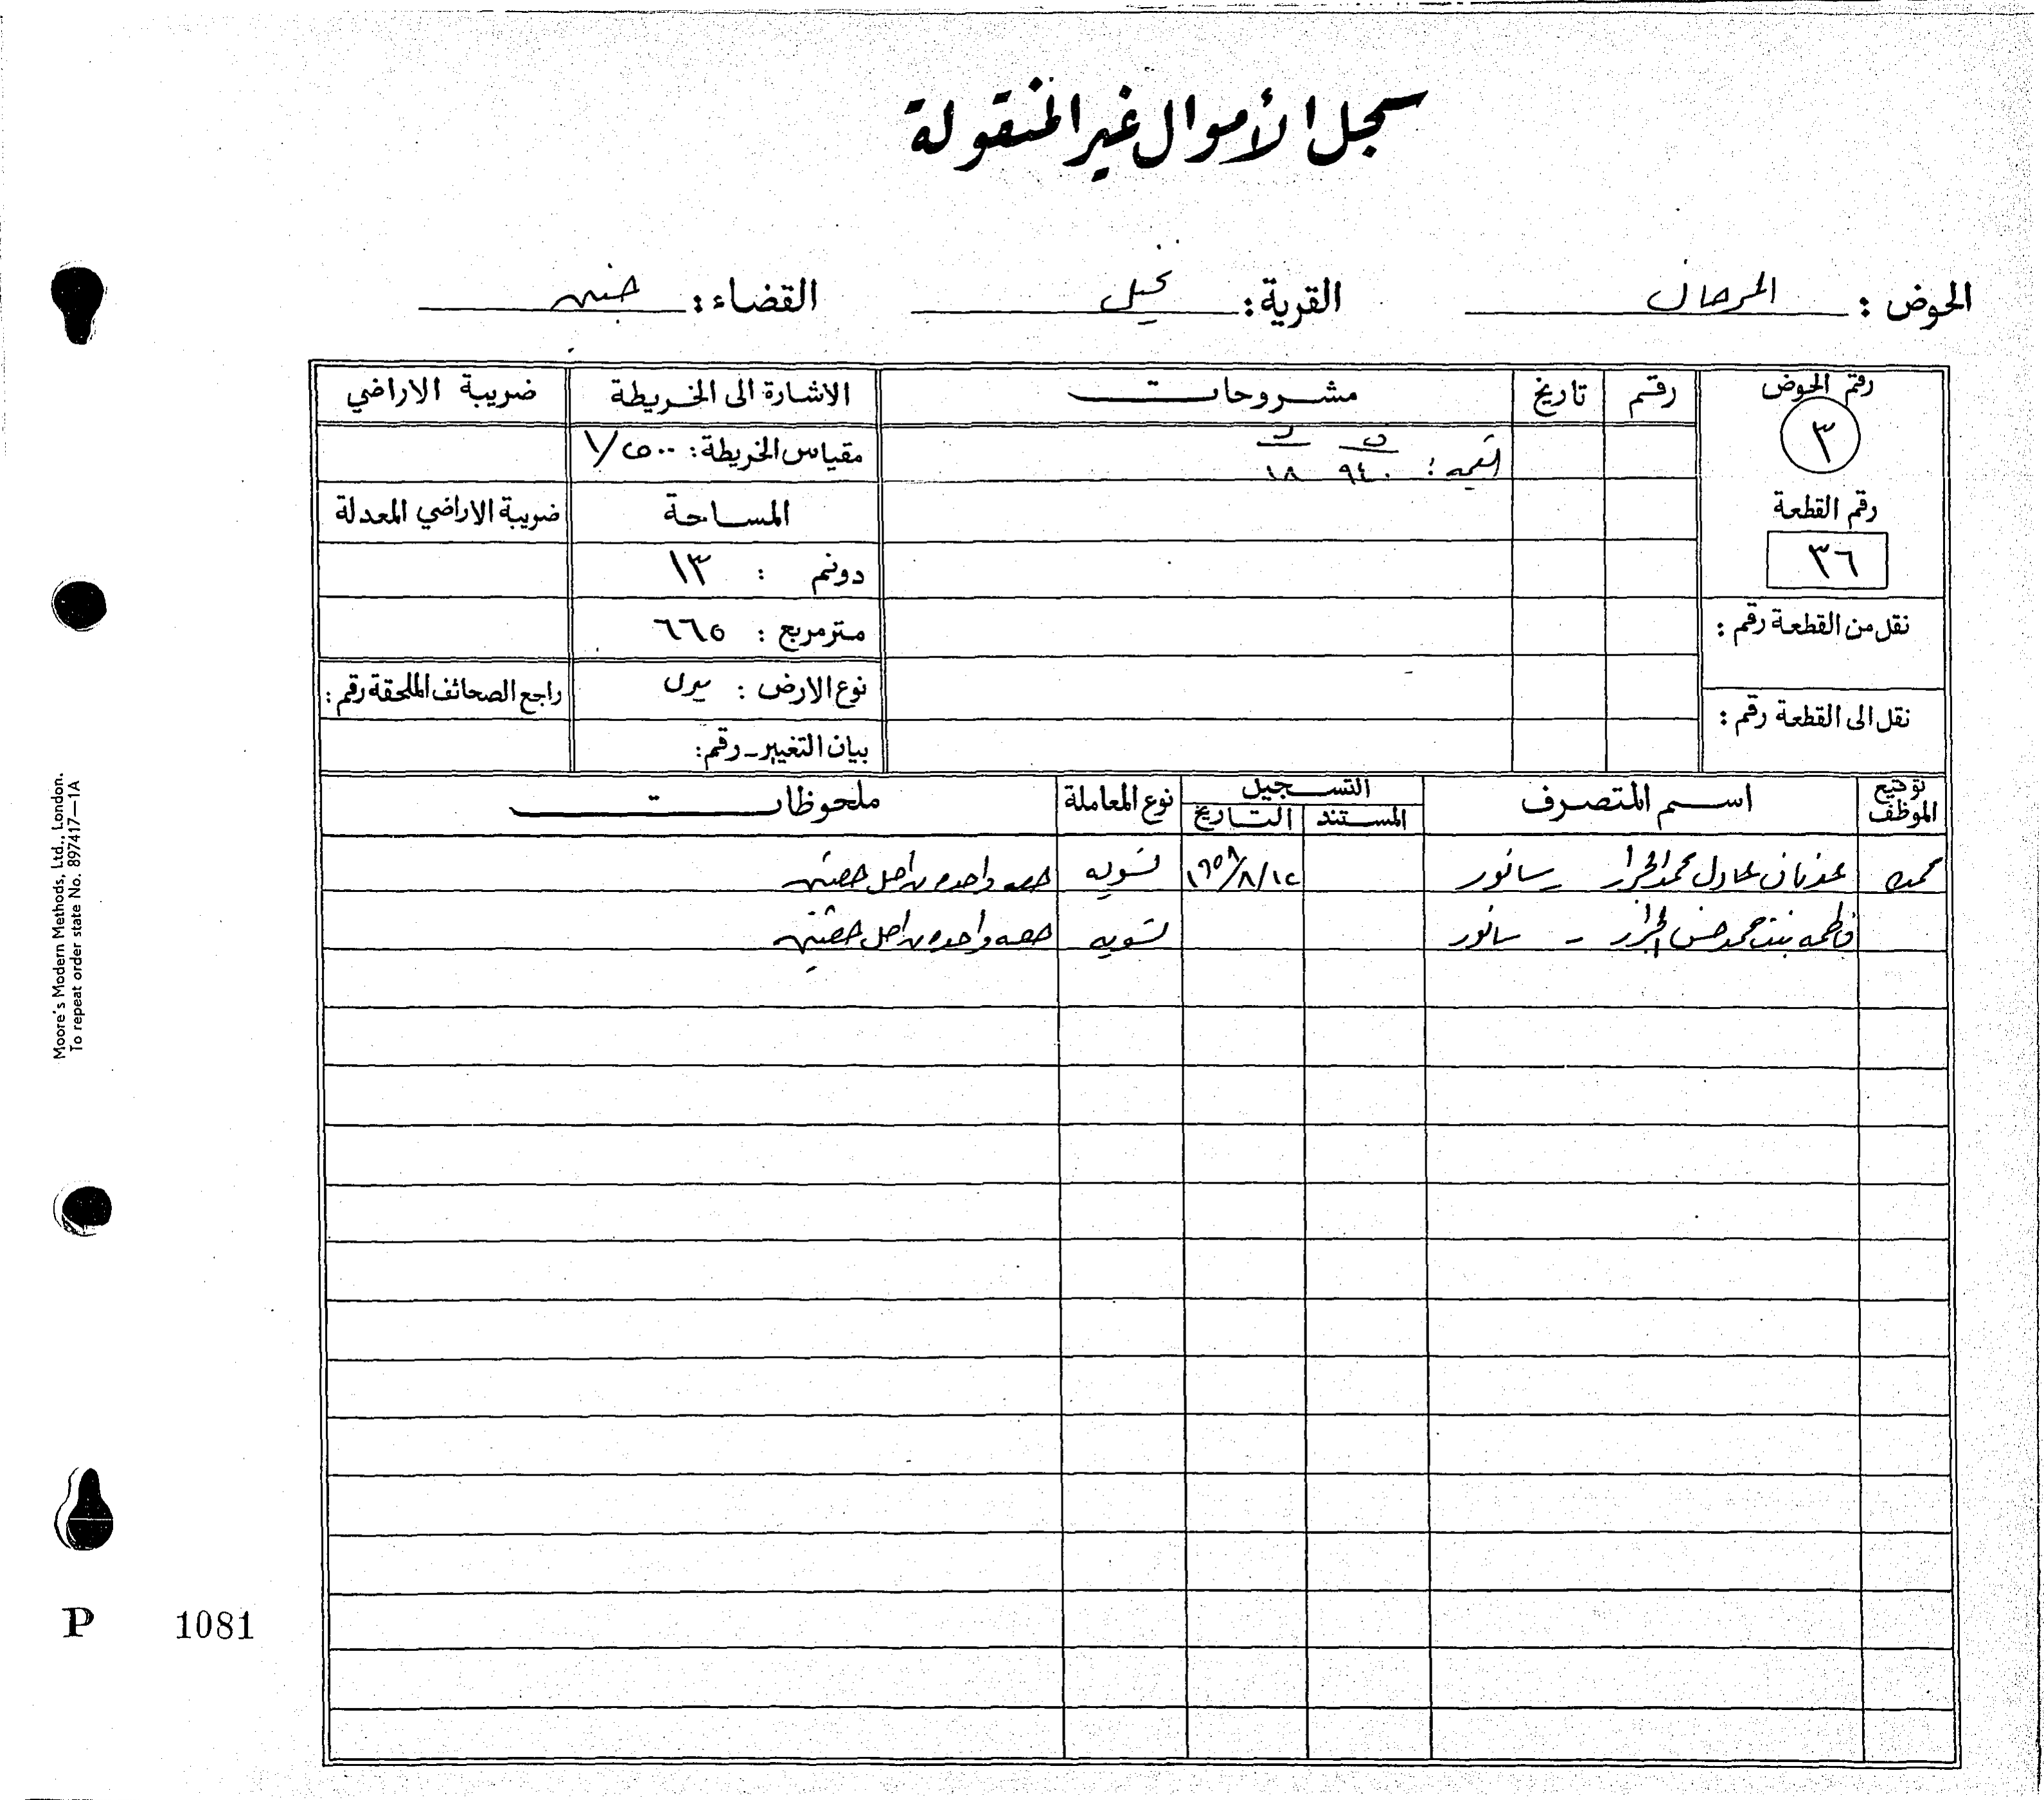 سجل الأموال غير المنقولة
الحوض : القرية: القضاء: جنين
رقم الحوض رقم تاريخ مشروحات الاشارة الى الخريطة ضريبة الاراضي
٣ القيمه : ٩٤٠ ١٨ مقياس الخريطة: ١/٢٥٠٠
رقم القطعة المساحة ضريبة الاراضي المعدلة
٣٦ دونم : ١٣
نقل من القطعة رقم : مترمربع : ٦٦٥
نوع الارض : ميري راجع الصحائف الملحقة رقم :
نقل الى القطعة رقم :
بيان التغيير - رقم:
توقيع الموظف اسم المتصرف التسجيل نوع المعاملة ملحوظات
المستند التاريخ
عدنان عادل محمد الجرار سانور ١٢/٨/٩٥٨ تسويه حصه واحده من اصل حصتين
فاطمه بنت محمد حسن الجرار - سانور تسويه حصه واحده من اصل حصتين
Moore's Modern Methods, Ltd., London.
To repeat order state No. 897417—1A
P 1081